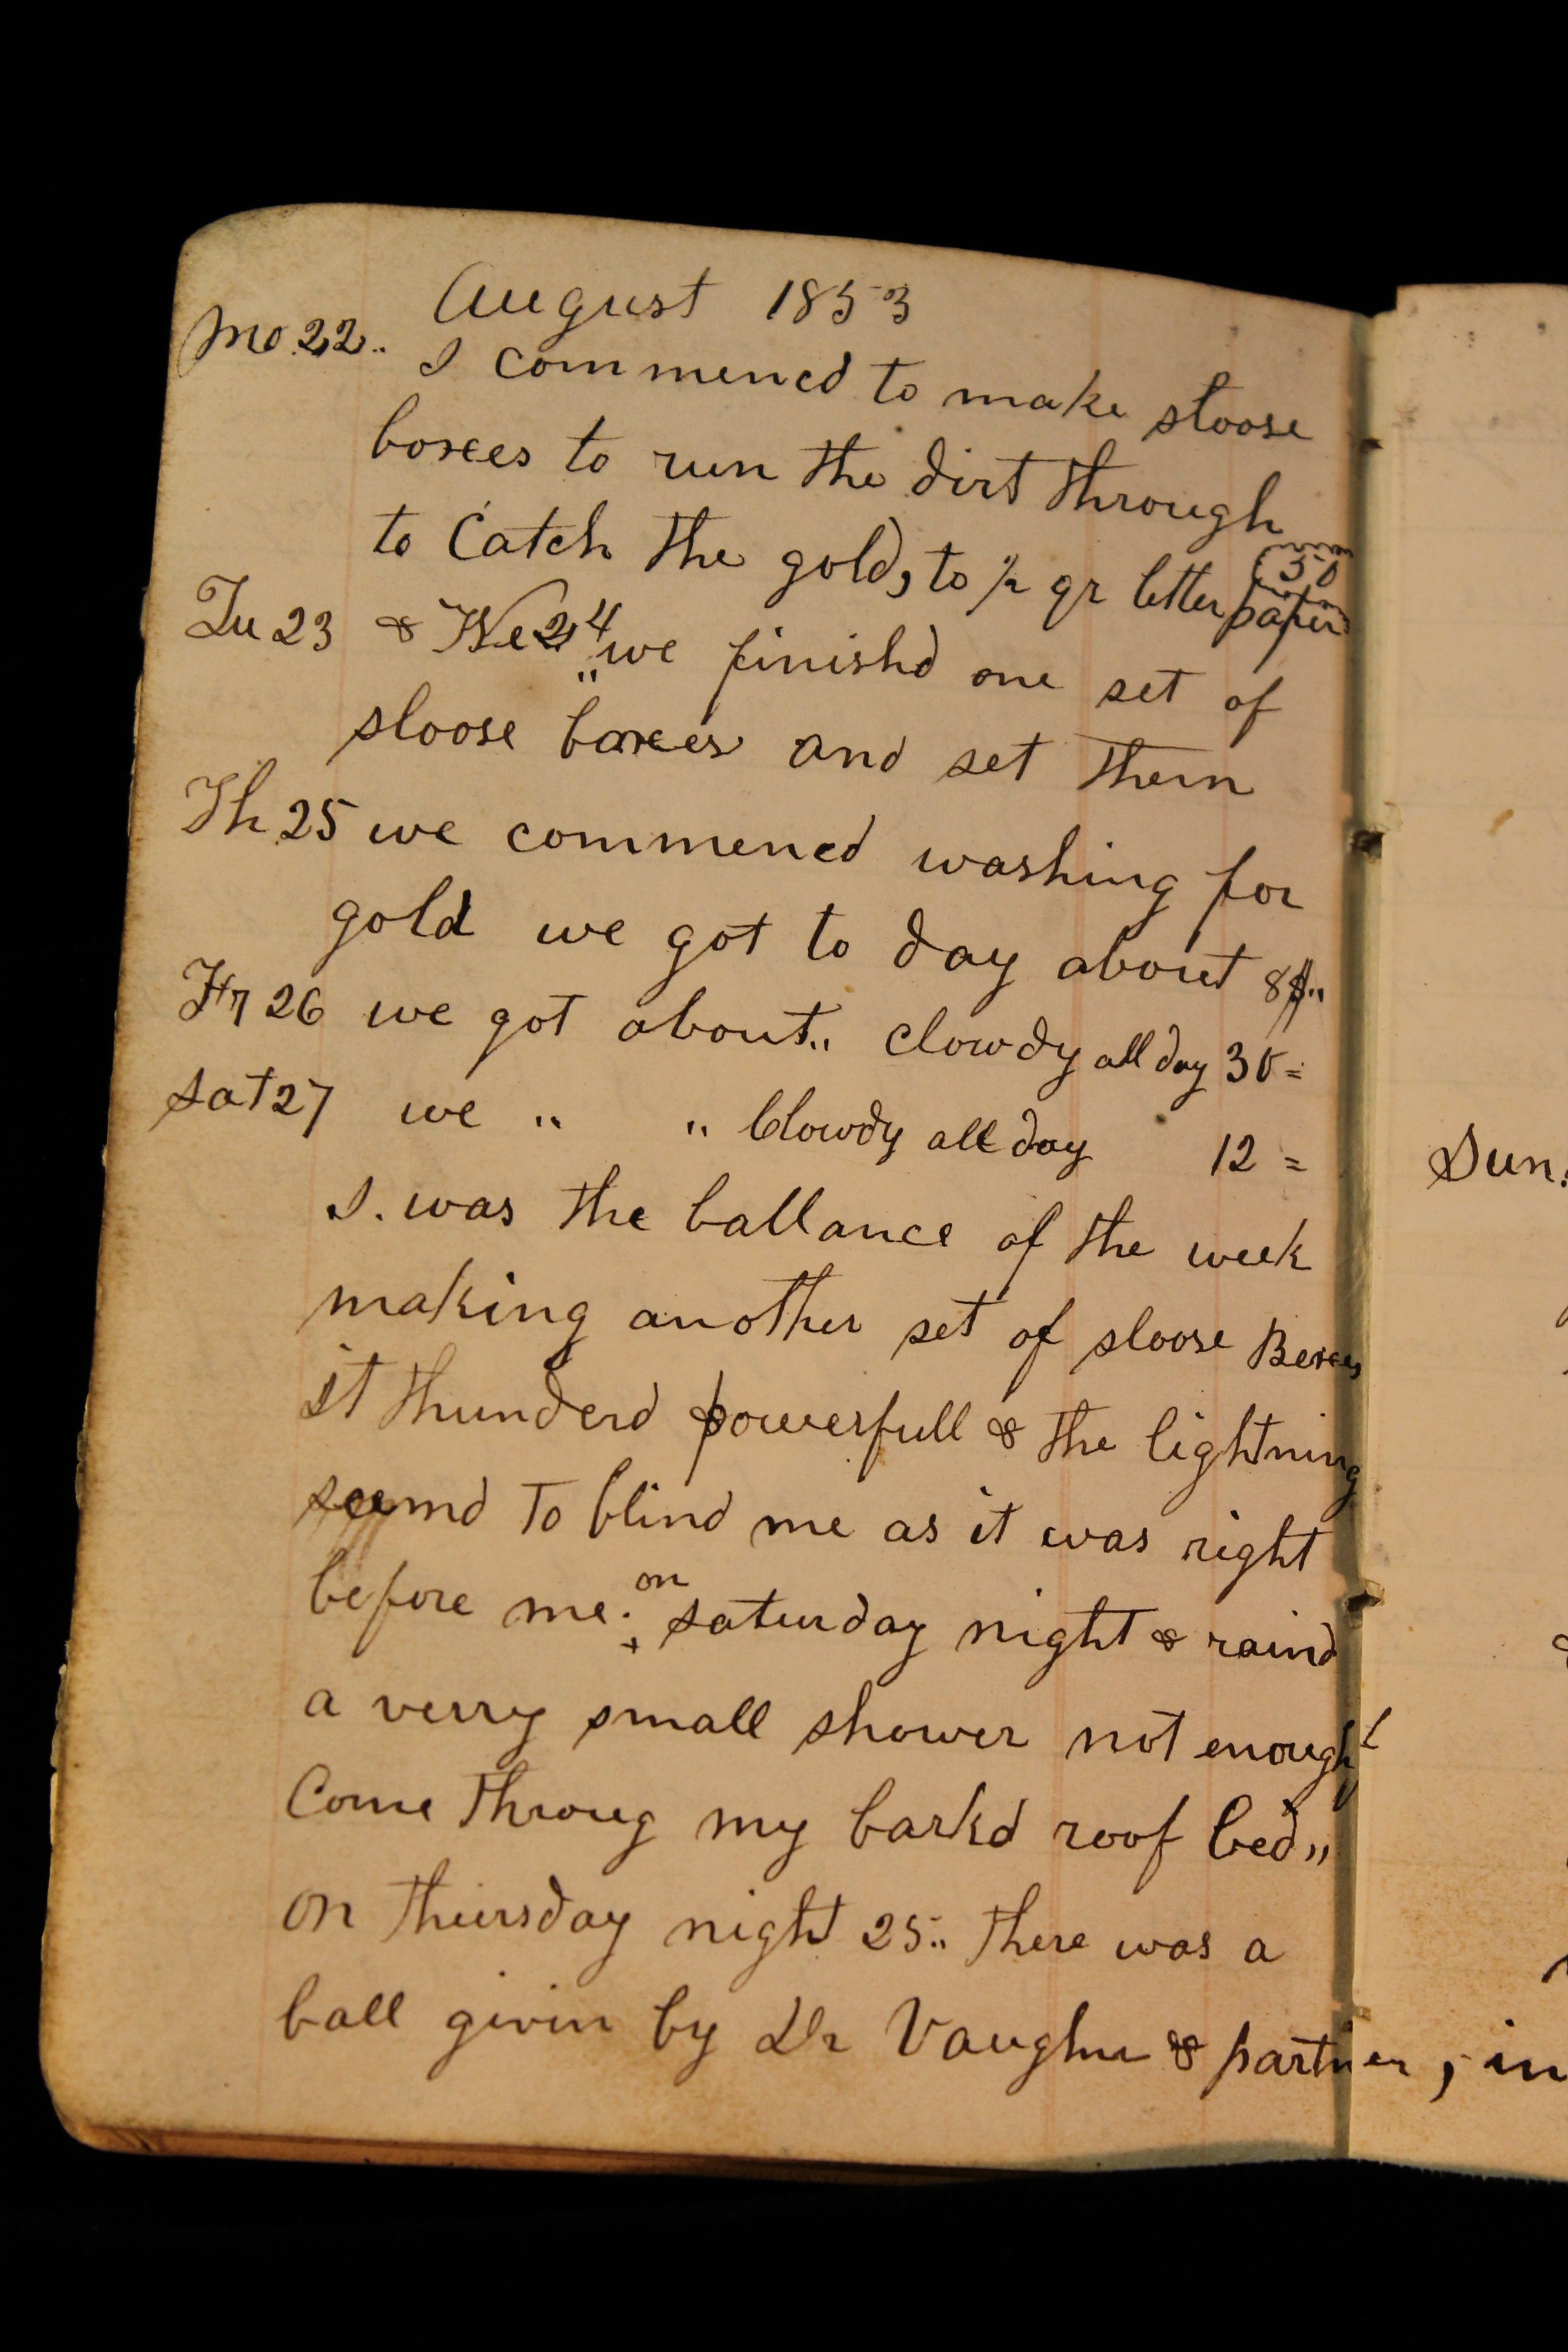 August 1853
Mo 22.. I commencd to make sloose
boxees to run the dirt through
to Catch the gold, to ½ qr letter paper 50
Tu 23 & We 24 " we finishd one set of
sloose boxees and set them
Th 25 we commencd washing for
gold we got to day about 8$"
Fr 26 we got about.. Clowdy all day 30 =
Sat 27 we " " Clowdy all day 12 =
I. was the ballance of the week
making another set of sloose Boxees
it thunderd powerfull & the lightning
seemd To blind me as it was right
before me. on saturday night & raind
a verry small shower not enought
Come throug my barkd roof bed"
on thursday night 25.. there was a
ball givin by Dr Vaughn & partner, in
Sun.